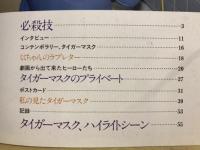 必殺技 3
インタビュー 11
コンテンポラリー、タイガーマスク 16
ミくちゃんのラブレター 18
劇画から出て来たヒーローたち 20
タイガーマスクのプライベート 27
ポストカード 31
私の見たタイガーマスク 39
記録 53
タイガーマスク、ハイライトシーン 55